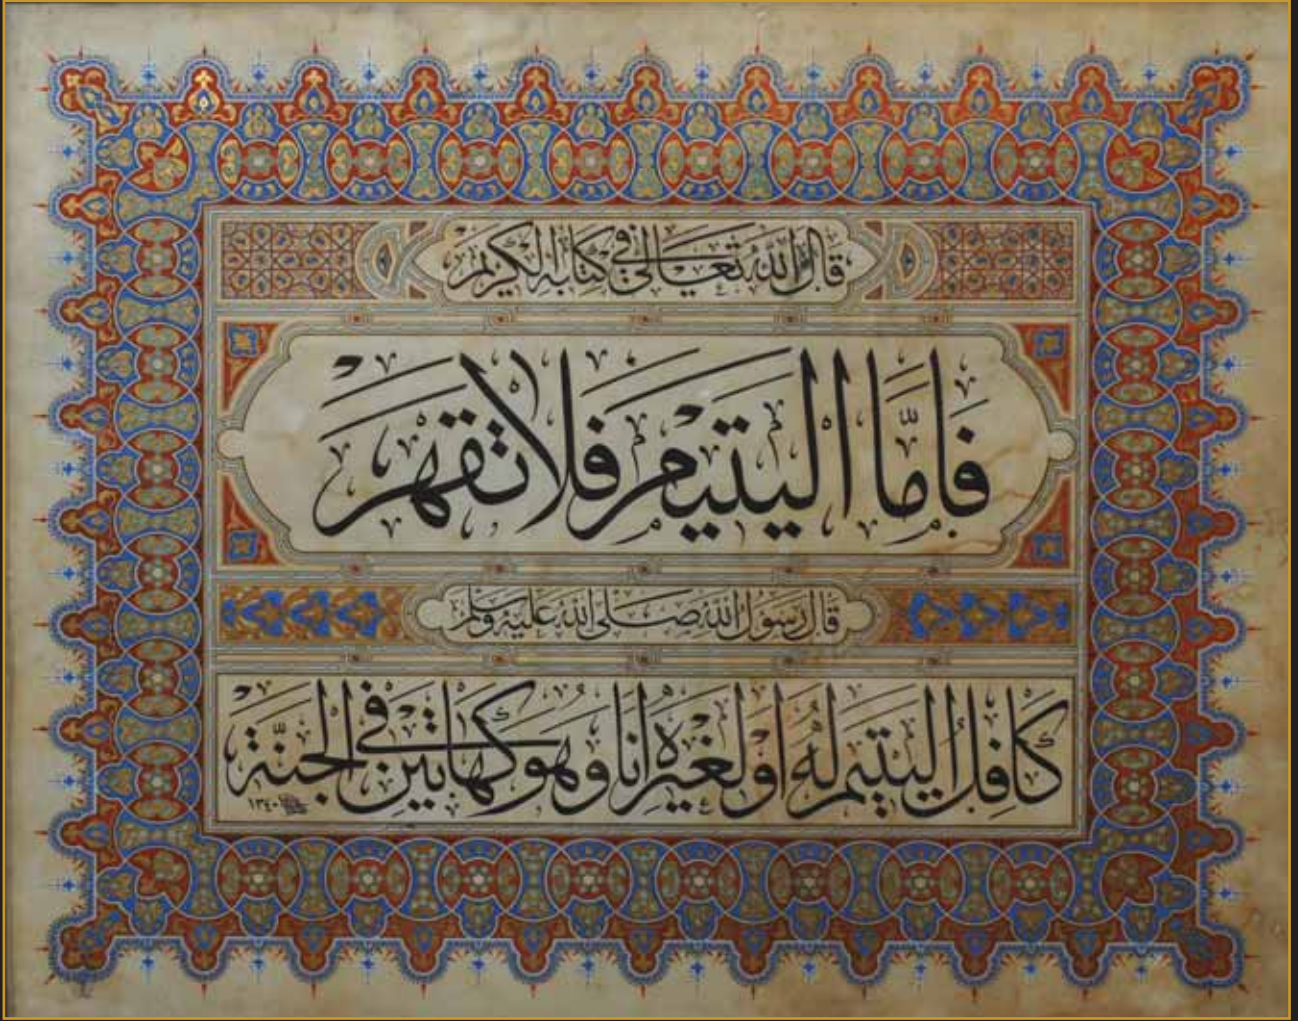 قَالَ اللّٰهُ تَعَالىٰ فِي كِتَابِهِ الْكَرِيْمِ
فَاَمَّا الْيَتيْمَ فَلَا تَقْهَرْ
قَالَ رَسُوْلُ اللّٰهِ صَلَّى اللّٰهُ عَلَيْهِ وَسَلَّم
كَافِلُ الْيَتيْمِ لَهُ اَوْ لِغَيْرِهِ اَنَا وَهُوَ كَهَاتَيْنِ فِي الْجَنَّةِ
١٣٤٠